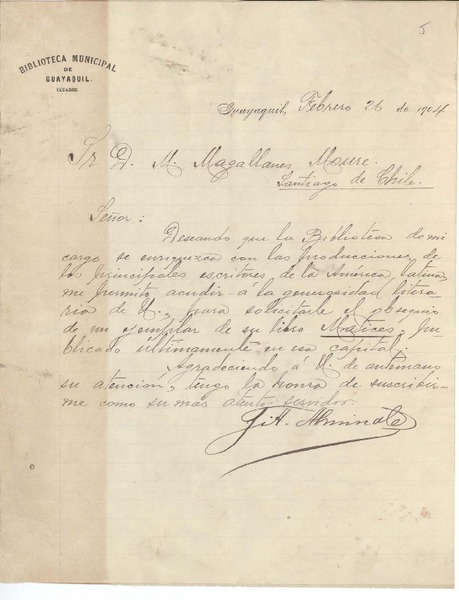 5
BIBLIOTECA MUNICIPAL
DE
GUAYAQUIL.
ECUADOR.
Guayaquil, Febrero 26 de 1904
Sr D. M. Magallanes Moure.
Santiago de Chile.
Señor:
Deseando que la Biblioteca de mi
cargo se enriquezca con las producciones de
los principales escritores de la América latina,
me permito acudir á la generosidad litera
ria de U., para solicitarle el obsequio
de un ejemplar de su libro Matices, pu
blicado últimamente en esa capital.
Agradeciendo á U. de antemano
su atención, tengo la honra de suscribir
me como su más atento servidor.